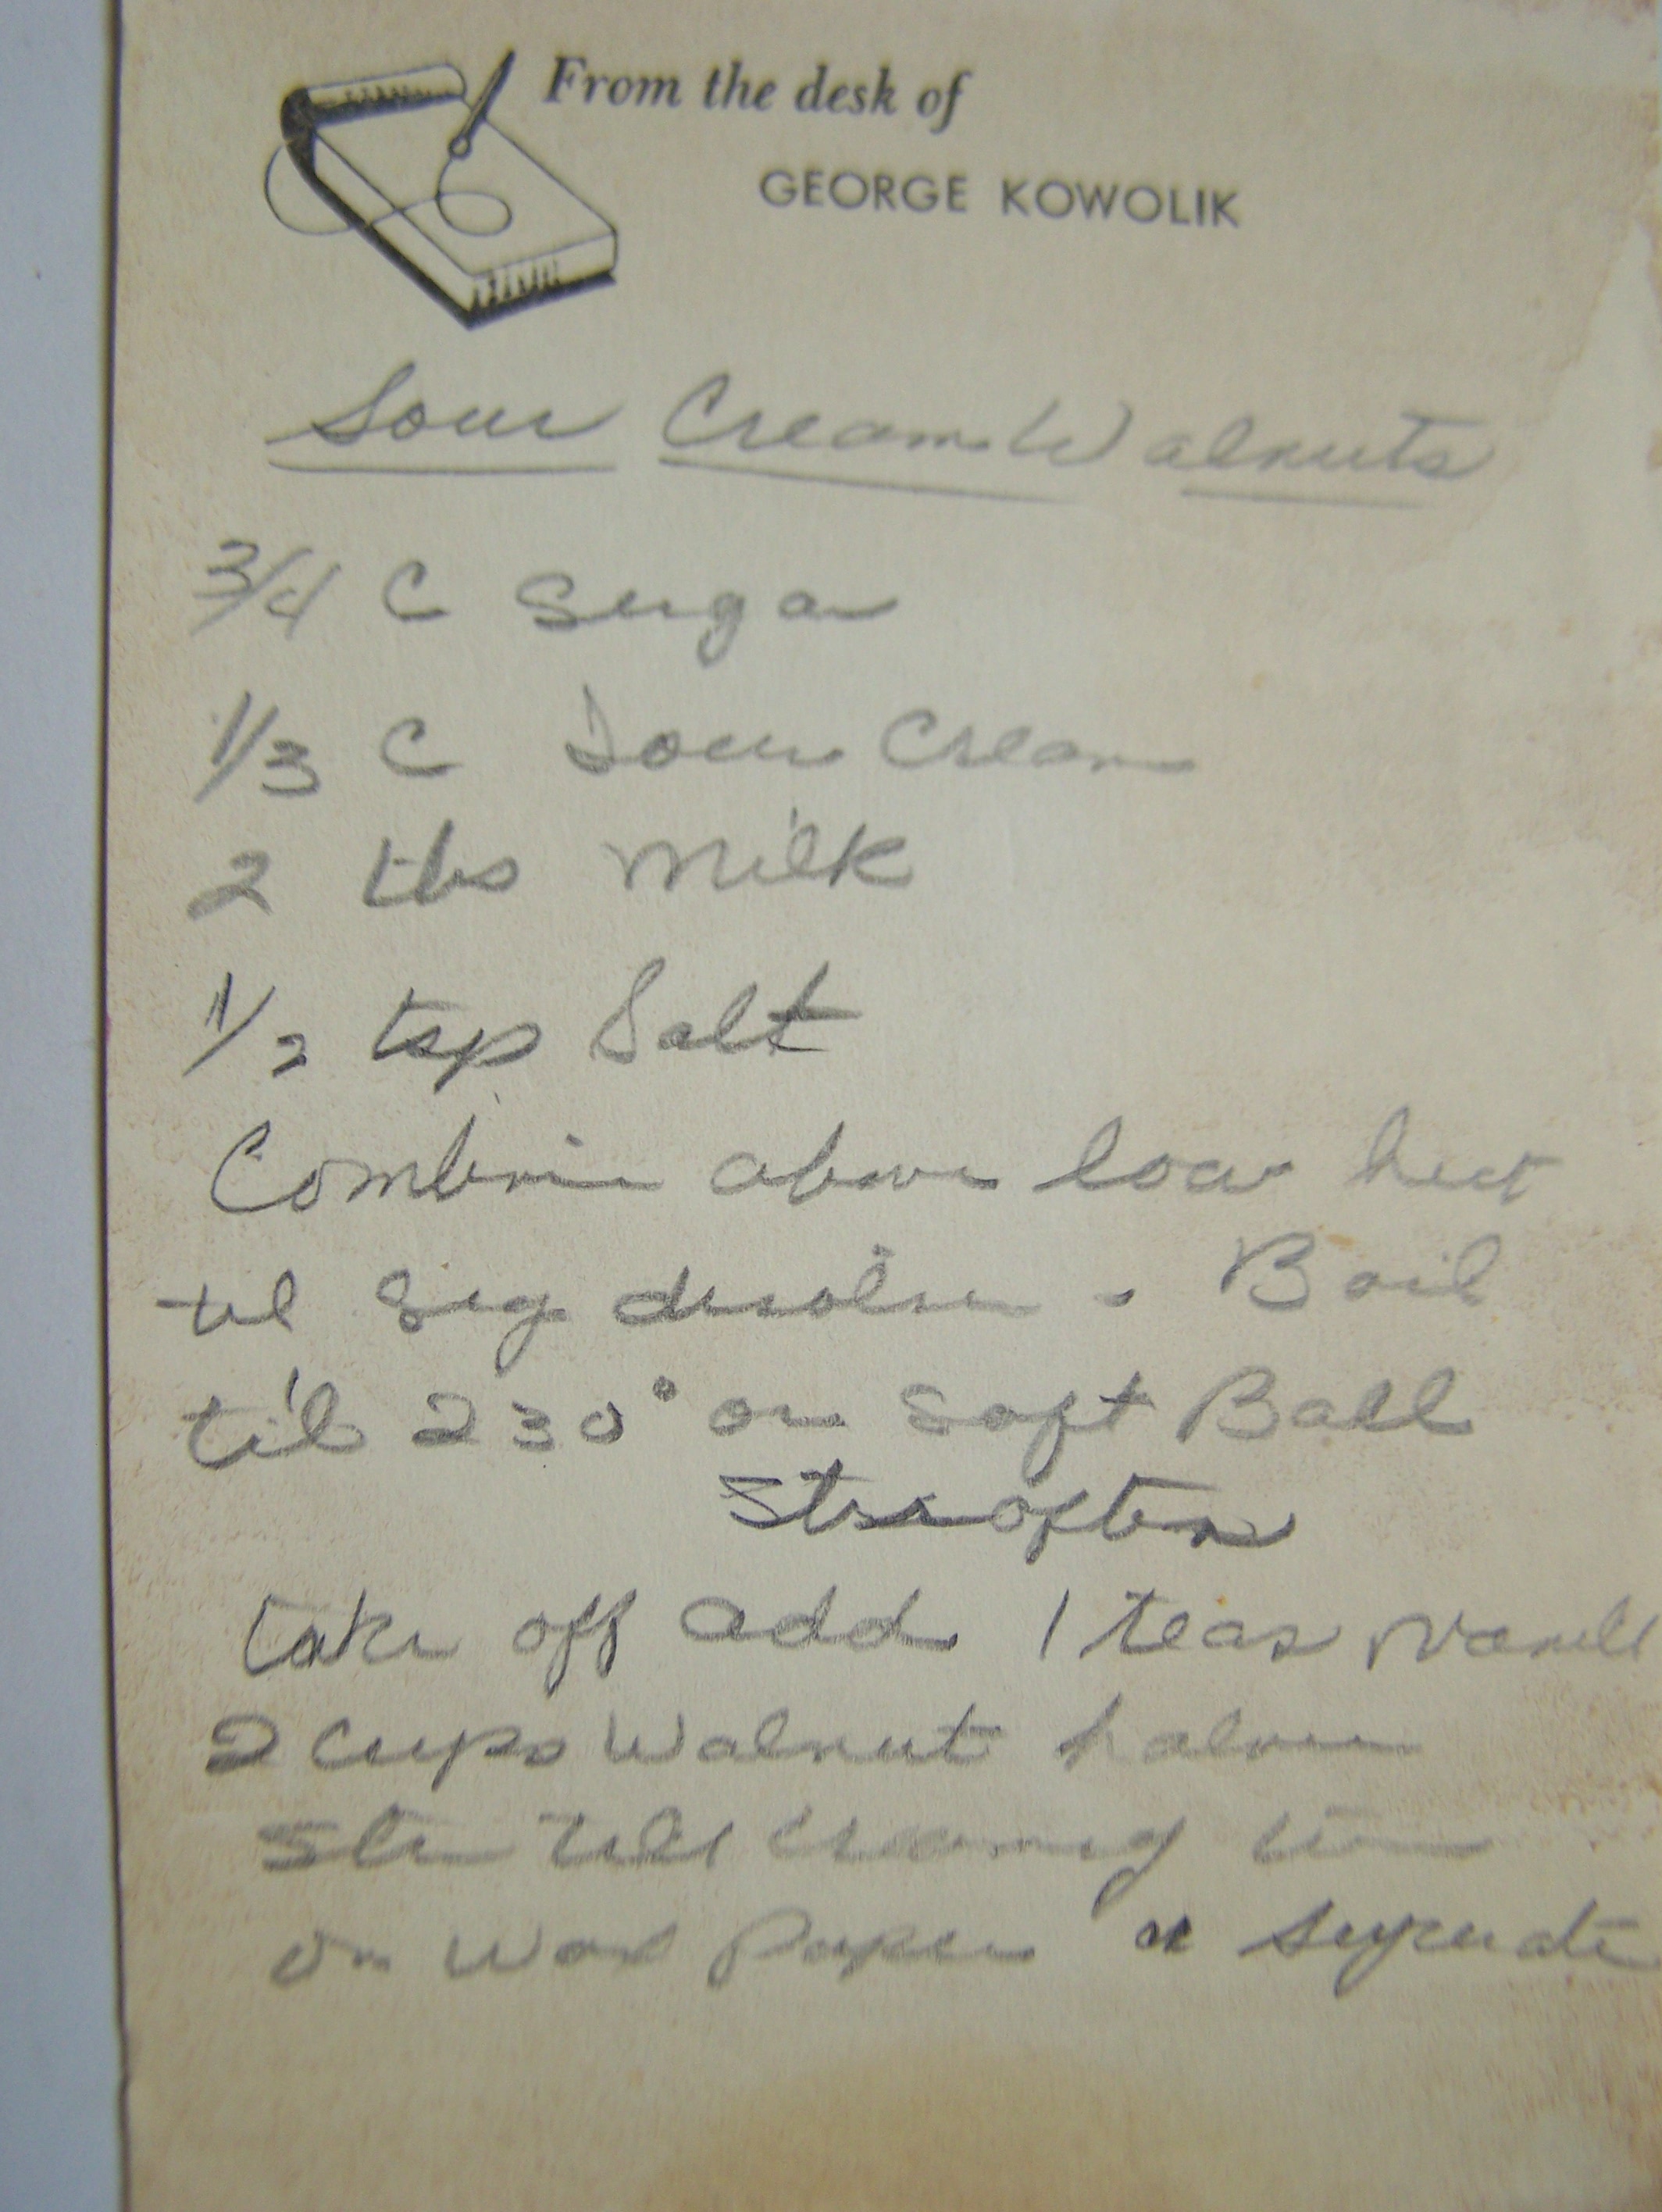 From the desk of
GEORGE KOWOLIK
Sour Cream Walnuts
3/4 C Sugar
1/3 C Sour Cream
2 tbs Milk
1/2 tsp Salt
Combine above low heat
til Sug disolves. Boil
til 230° or Soft Ball
Stir often
take off add 1 teas Vanill
2 Cups Walnut halves
Stir till creamy
on Wax Paper &